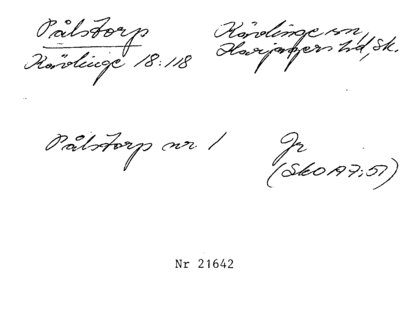 Pålstorp
Kävlinge sn,
Kävlinge 18:118
Harjagers hd, Sk.
Pålstorp nr 1
Jr
(SkO A7:57)
Nr 21642